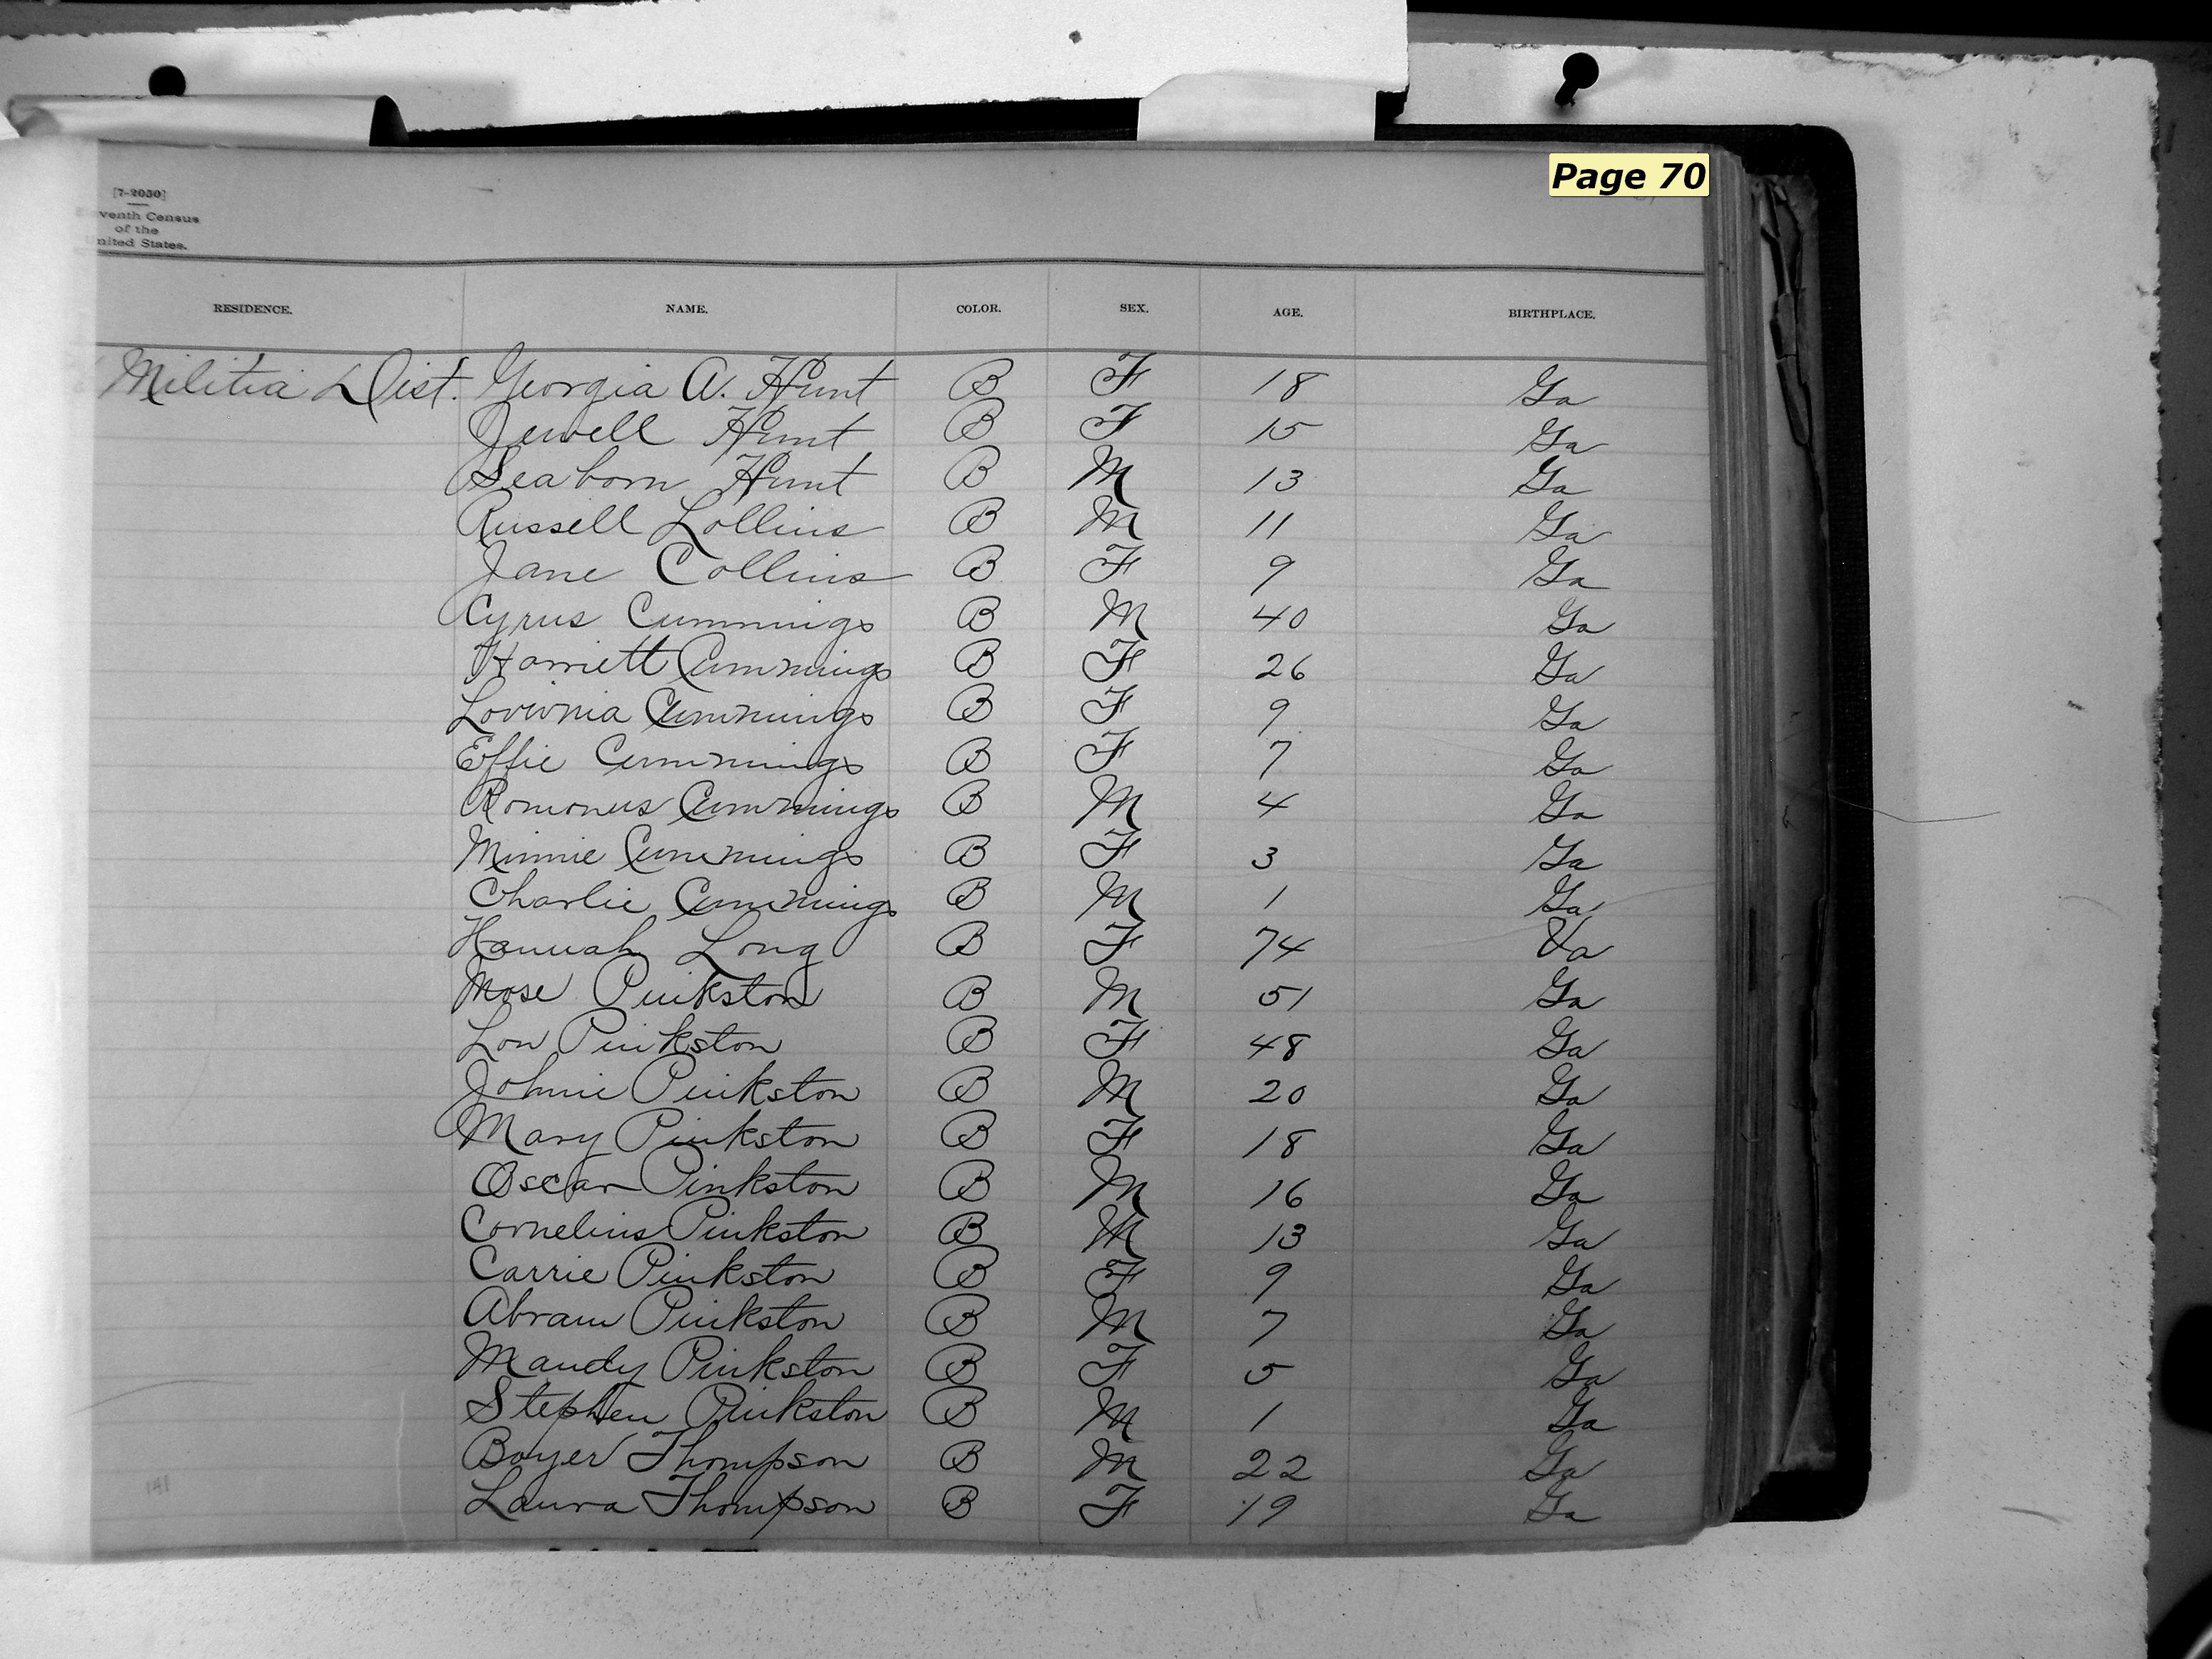 Page 70
[7-2050]
venth Census
of the
nited States.
RESIDENCE. NAME. COLOR. SEX. AGE. BIRTHPLACE.
Militia Dist. Georgia A. Hunt B F 18 Ga
Jewell Hunt B F 15 Ga
Seaborn Hunt B M 13 Ga
Russell Collins B M 11 Ga
Jane Collins B F 9 Ga
Cyrus Cummings B M 40 Ga
Harriett Cummings B F 26 Ga
Lovivnia Cummings B F 9 Ga
Effie Cummings B F 7 Ga
Romonus Cummings B M 4 Ga
Minnie Cummings B F 3 Ga
Charlie Cummings B M 1 Ga
Hannah Long B F 74 Va
Mose Pinkston B M 51 Ga
Lou Pinkston B F 48 Ga
Johnie Pinkston B M 20 Ga
Mary Pinkston B F 18 Ga
Oscar Pinkston B M 16 Ga
Cornelius Pinkston B M 13 Ga
Carrie Pinkston B F 9 Ga
Abram Pinkston B M 7 Ga
Mandy Pinkston B F 5 Ga
Stephen Pinkston B M 1 Ga
Boyer Thompson B M 22 Ga
Laura Thompson B F 19 Ga
141